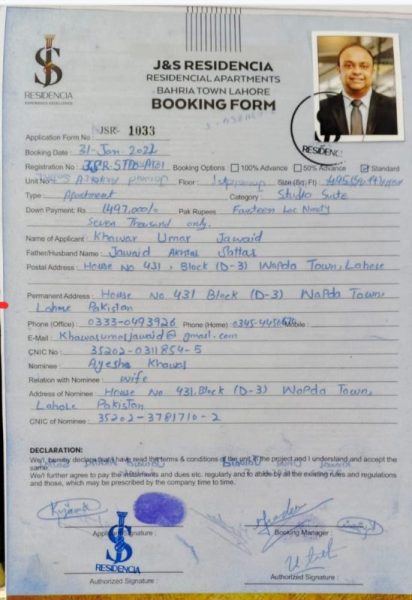 J&S RESIDENCIA
RESIDENCIAL APARTMENTS
BAHRIA TOWN LAHORE
BOOKING FORM
RESIDENCIA
Application Form No JSR- 1033
RESIDENC
Booking Date : 31-Jan-2022
Registration No : Booking Options 100% Advance 50% Advance Standard
Unit No: Floor : Size (Sq. Ft)
Type: Apartment Category : Studio Suite
Down Payment: Rs 1497.000/= Pak Rupees Fourteen Lac Ninty
Seven Thousand only.
Name of Applicant : Khawar Umar Jawaid
Father/Husband Name : Jawaid Akhtar Sattar
Postal Address : House No 431, Block (D-3) WaPda Town, Lahore
Permanent Address : House No 431 Block (D-3) WaPda Town,
Lahore Pakistan
Phone (Office) : 0333-0493926 Phone (Home) : Mobile :
E-Mail : Khawarumarjawaid@gmail.com
CNIC No : 35202-0311854-5
Nominee : Ayesha Khawar
Relation with Nominee : wife
Address of Nominee : House No 431, Block (D-3) WaPda Town,
Lahore Pakistan
CNIC of Nominee : 35202-3781710-2
DECLARATION:
We/I, hereby declare that I have read the terms & conditions of the unit in the project and I understand and accept the
same.
We/I further agree to pay the installments and dues etc. regularly and to abide by all the existing rules and regulations
and those, which may be prescribed by the company time to time.
Applicant Signature : Booking Manager :
RESIDENCIA
Authorized Signature : Authorized Signature :